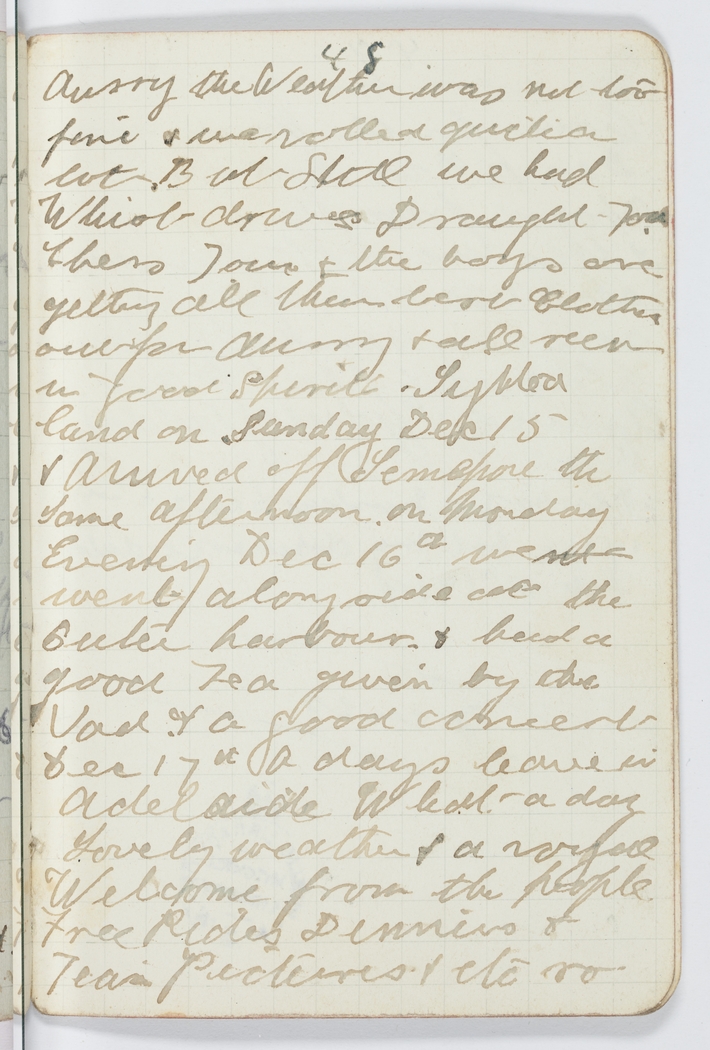 48
Aussy the Weather was not too
fine & we rolled quite a
lot. But Still we had
Whist drives Draught Tour
Chess Tour & the boys are
getting all their best Clothes
out for Aussy & all seem
in good Spirits. Syted
land on Sunday Dec 15
& Arrived off Semaphore the
same afternoon. on Monday
Evening Dec 16th went
went alongside at the
Outer harbour. & had a
good Tea given by the
Vad & a good concert
Dec 17th A days leave in
Adelaide What a day
Lovely weather & a royal
Welcome from the people
Free Rides Dinners &
Teas Pictures & etc ro